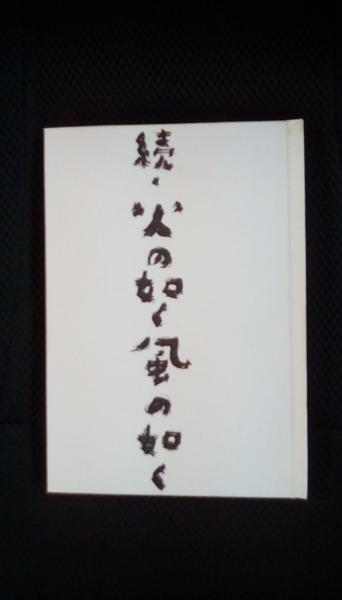 続・火の如く風の如く